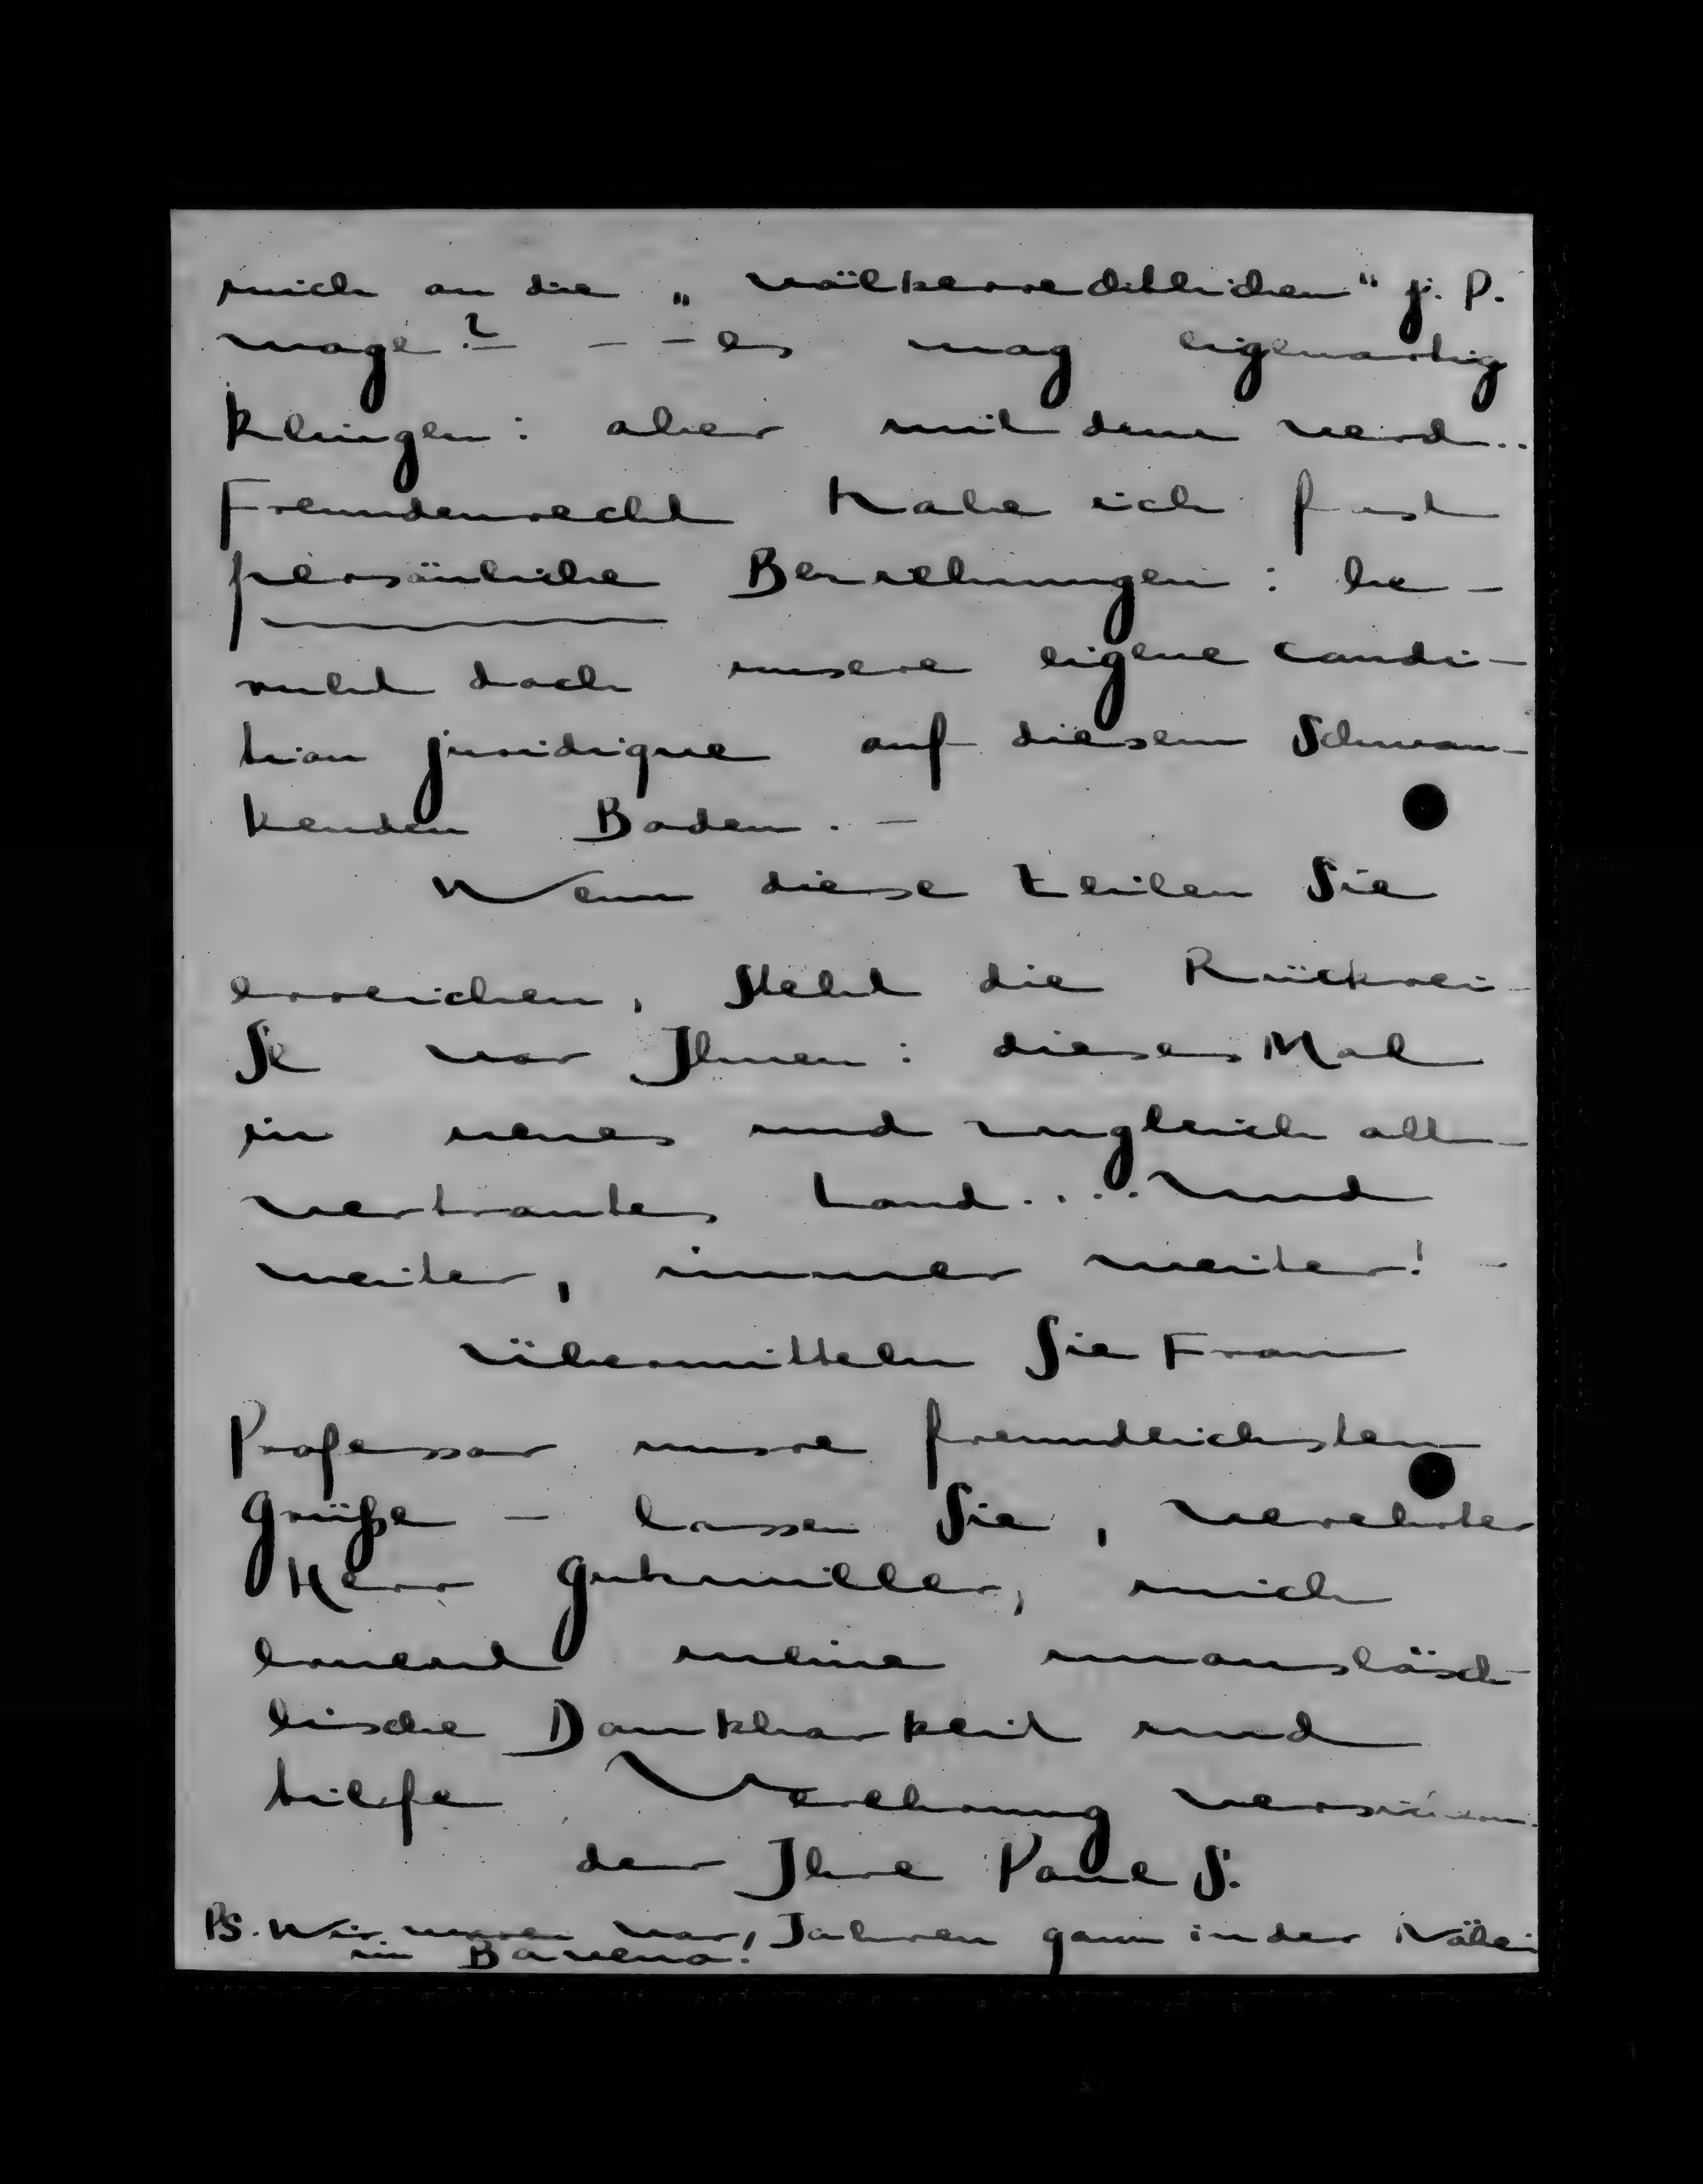 mich an die „völkerrechtlichen" j. P.
wage? – – – es mag eigenartig
klingen: aber mit dem verd..
Fremdenrecht habe ich fast
persönliche Beziehungen: be-
ruht doch unsere eigene condi-
tion juridique auf diesem Schwan-
kenden Boden. –
Wenn diese Zeilen Sie
erreichen, steht die Rückrei-
se vor Ihnen: dieses Mal
in neues und zugleich alt-
vertrautes Land.... und
weiter, immer weiter! –
übermitteln Sie Frau
Professor unsre freundlichsten
Grüße – lassen Sie, verehrter
Herr Gutzwiller, mich
erneut meine unauslösch-
lische Dankbarkeit und
tiefe Verehrung versichern.
der Ihre Paul S.
PS. Wir waren vor Jahren ganz in der Nähe:
in Baveno!